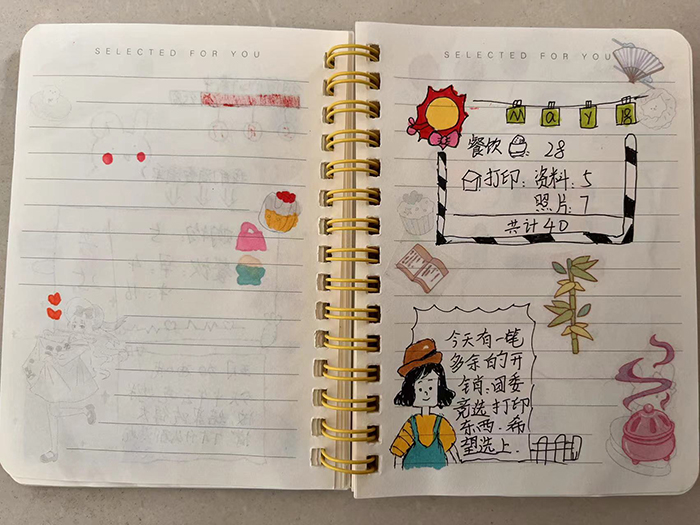 SELECTED FOR YOU
SELECTED FOR YOU
May 8
餐饮: 28
打印: 资料: 5
照片: 7
共计 40
今天有一笔
多余的开
销:团委
竞选打印
东西.希
望选上.